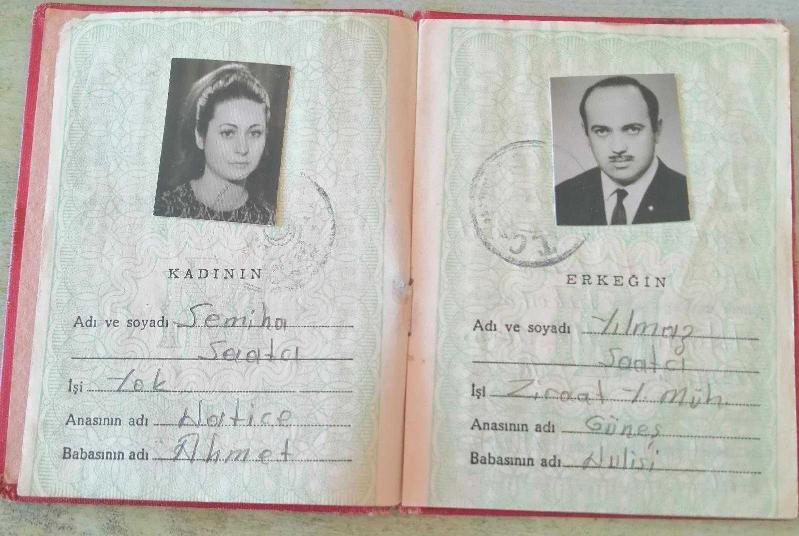 KADININ
Adı ve soyadı Semiha
Saatcı
İşi Yok
Anasının adı Hatice
Babasının adı Ahmet
T.C.
ERKEĞİN
Adı ve soyadı Yılmaz
Saatcı
İşi Ziraat Y Müh.
Anasının adı Güneş
Babasının adı Hulisi